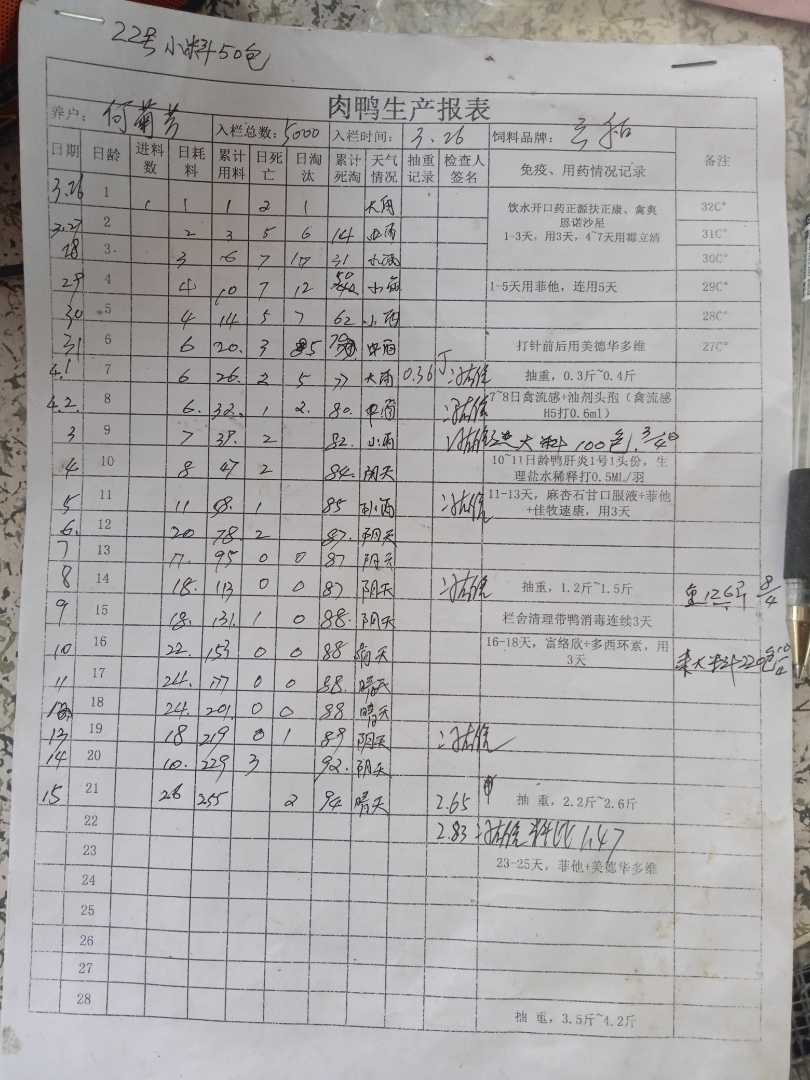 22号小料50包
肉鸭生产报表
养户: 何菊芳 入栏总数: 5000 入栏时间: 3.26 饲料品牌:
日期 日龄 进料数 日耗料 累计用料 日死亡 日淘汰 累计死淘 天气情况 抽重记录 检查人签名 免疫、用药情况记录 备注
3.26 1 1 1 1 2 1 大雨 饮水开口药正源扶正康、禽爽 32C°
恩诺沙星
3.27 2 2 3 5 6 14 中雨 1-3天，用3天，4~7天用霉立清 31C°
28 3 3 6 7 17 31 小雨 30C°
29 4 4 10 7 12 50 小雨 1-5天用菲他，连用5天 29C°
30 5 4 14 5 7 62 小雨 28C°
31 6 6 20. 3 5 中雨 打针前后用美德华多维 27C°
4.1 7 6 26. 2 5 77 大雨 0.36斤 抽重，0.3斤~0.4斤
4.2. 8 6. 32. 1 2. 80. 中雨 7~8日禽流感+油剂头孢（禽流感
H5打0.6ml）
3 9 7 39. 2 82. 小雨 进大料100包. 3/4
4 10 8 47 2 84. 阴天 10~11日龄鸭肝炎1号1头份，生
理盐水稀释打0.5ML/羽
5 11 11 58. 1 85 小雨 11-13天，麻杏石甘口服液+菲他
+佳牧速康，用3天
6. 12 20 78. 2 87. 阴天
7 13 17. 95 0 0 87 阴天
8 14 18. 113 0 0 87 阴天 抽重，1.2斤~1.5斤 重1.26斤 8/4
9 15 18. 131. 1 0 88. 阴天 栏舍清理带鸭消毒连续3天
10 16 22. 153 0 0 88 晴天 16-18天，富络欣+多西环素，用
3天 来大料220包 10/4
11 17 24. 177 0 0 88. 晴天
12 18 24. 201. 0 0 88 晴天
13 19 18 219 0 1 89 阴天
14 20 10. 229 3 92. 阴天
15 21 26 255 2 94 晴天 2.65 抽 重，2.2斤~2.6斤
22 2.83 料比1.47
23 23-25天，菲他+美德华多维
24
25
26
27
28 抽 重，3.5斤~4.2斤